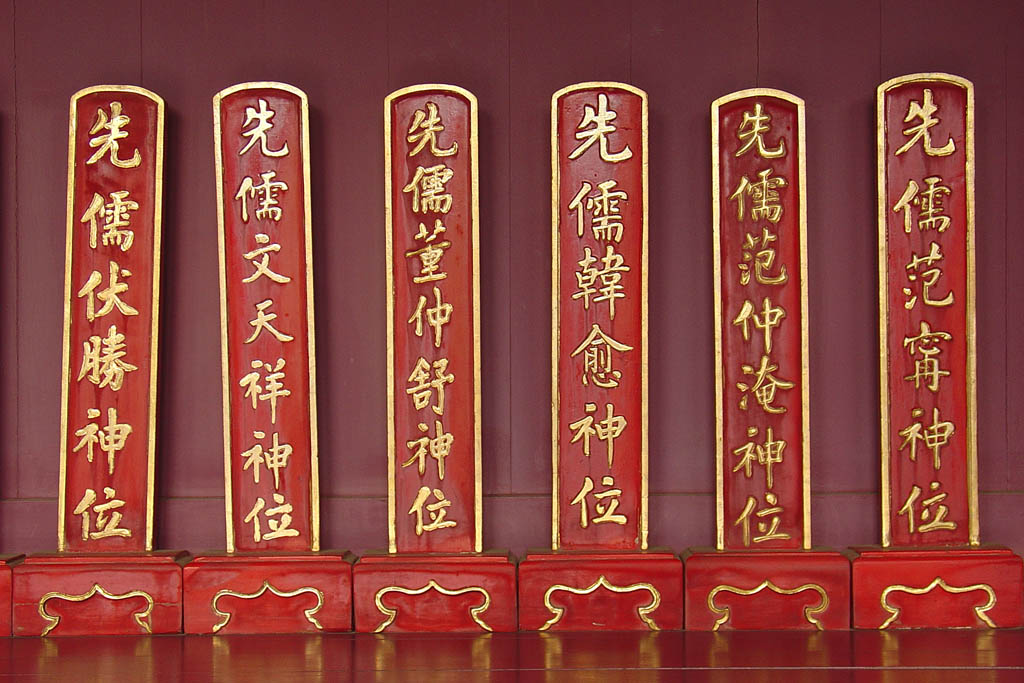 先儒范甯神位
先儒范仲淹神位
先儒韓愈神位
先儒董仲舒神位
先儒文天祥神位
先儒伏勝神位